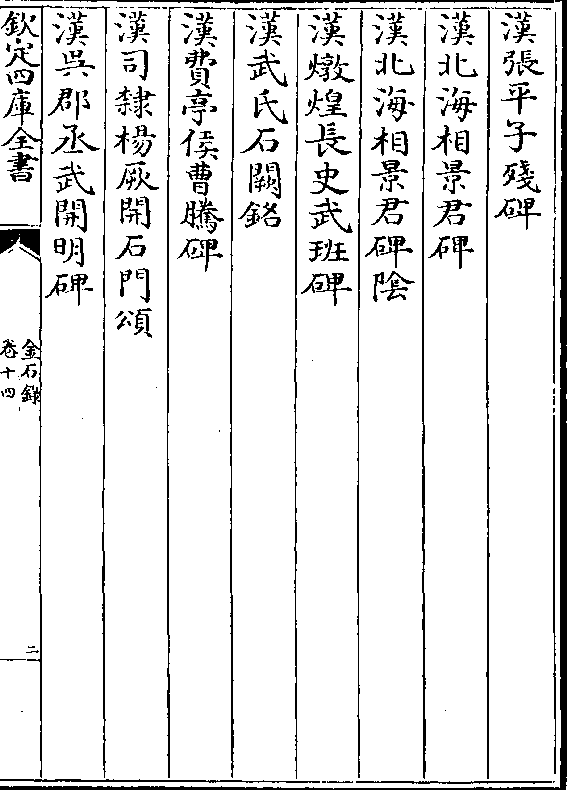 漢張平子殘碑
漢北海相景君碑
漢北海相景君碑陰
漢燉煌長史武班碑
漢武氏石闕銘
漢費亭侯曹騰碑
漢司隸楊厥開石門頌
漢吳郡丞武開明碑
欽定四庫全書
金石錄
卷十四
二